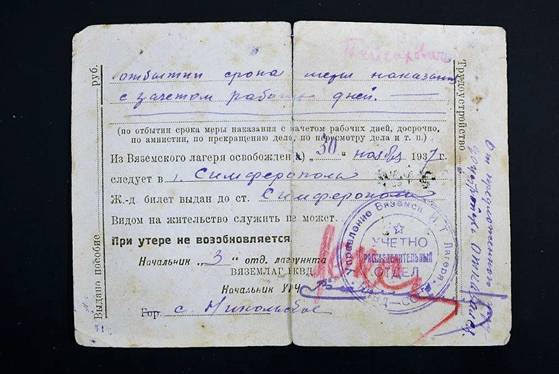 отбытии срока меры наказания
с зачетом рабочих дней.
(по отбытии срока меры наказания с зачетом рабочих дней, досрочно,
по амнистии, по прекращению дела, по пересмотру дела и т. п.)
Из Вяземского лагеря освобожден(а) „30“ ноября 1937 г.
следует в г. Симферополь
Ж.-д билет выдан до ст. Симферополь
Видом на жительство служить не может.
При утере не возобновляется.
Начальник „3“ отд. лагпункта
ВЯЗЕМЛАГ НКВД
Начальник УРЧ
Гор. с. Никольское
Выдано пособие руб.
Трудоустройство
Управление Вяземск. И. Т. Лагеря
УЧЕТНО
РАСПРЕДЕЛИТЕЛЬНЫЙ
ОТДЕЛ